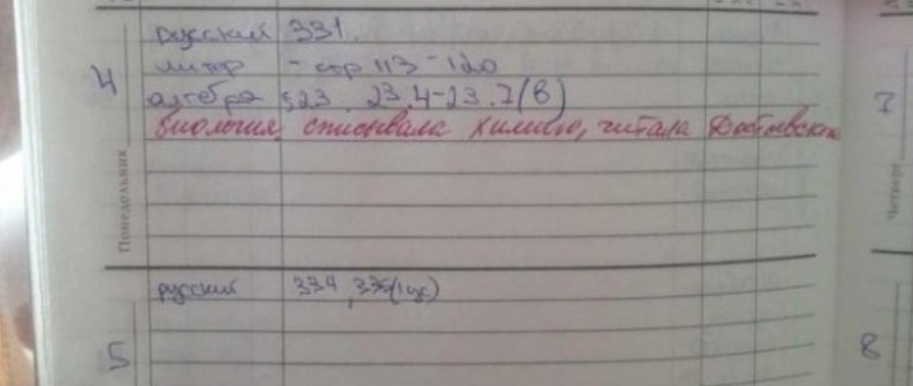 русский 331.
литер - стр 113-120
4
алгебра §23. 23.4-23.7(в)
биология, списывала химию, читала Достоевского
Понедельник
7
Четверг
русский 334, 335(1 ус)
5
8